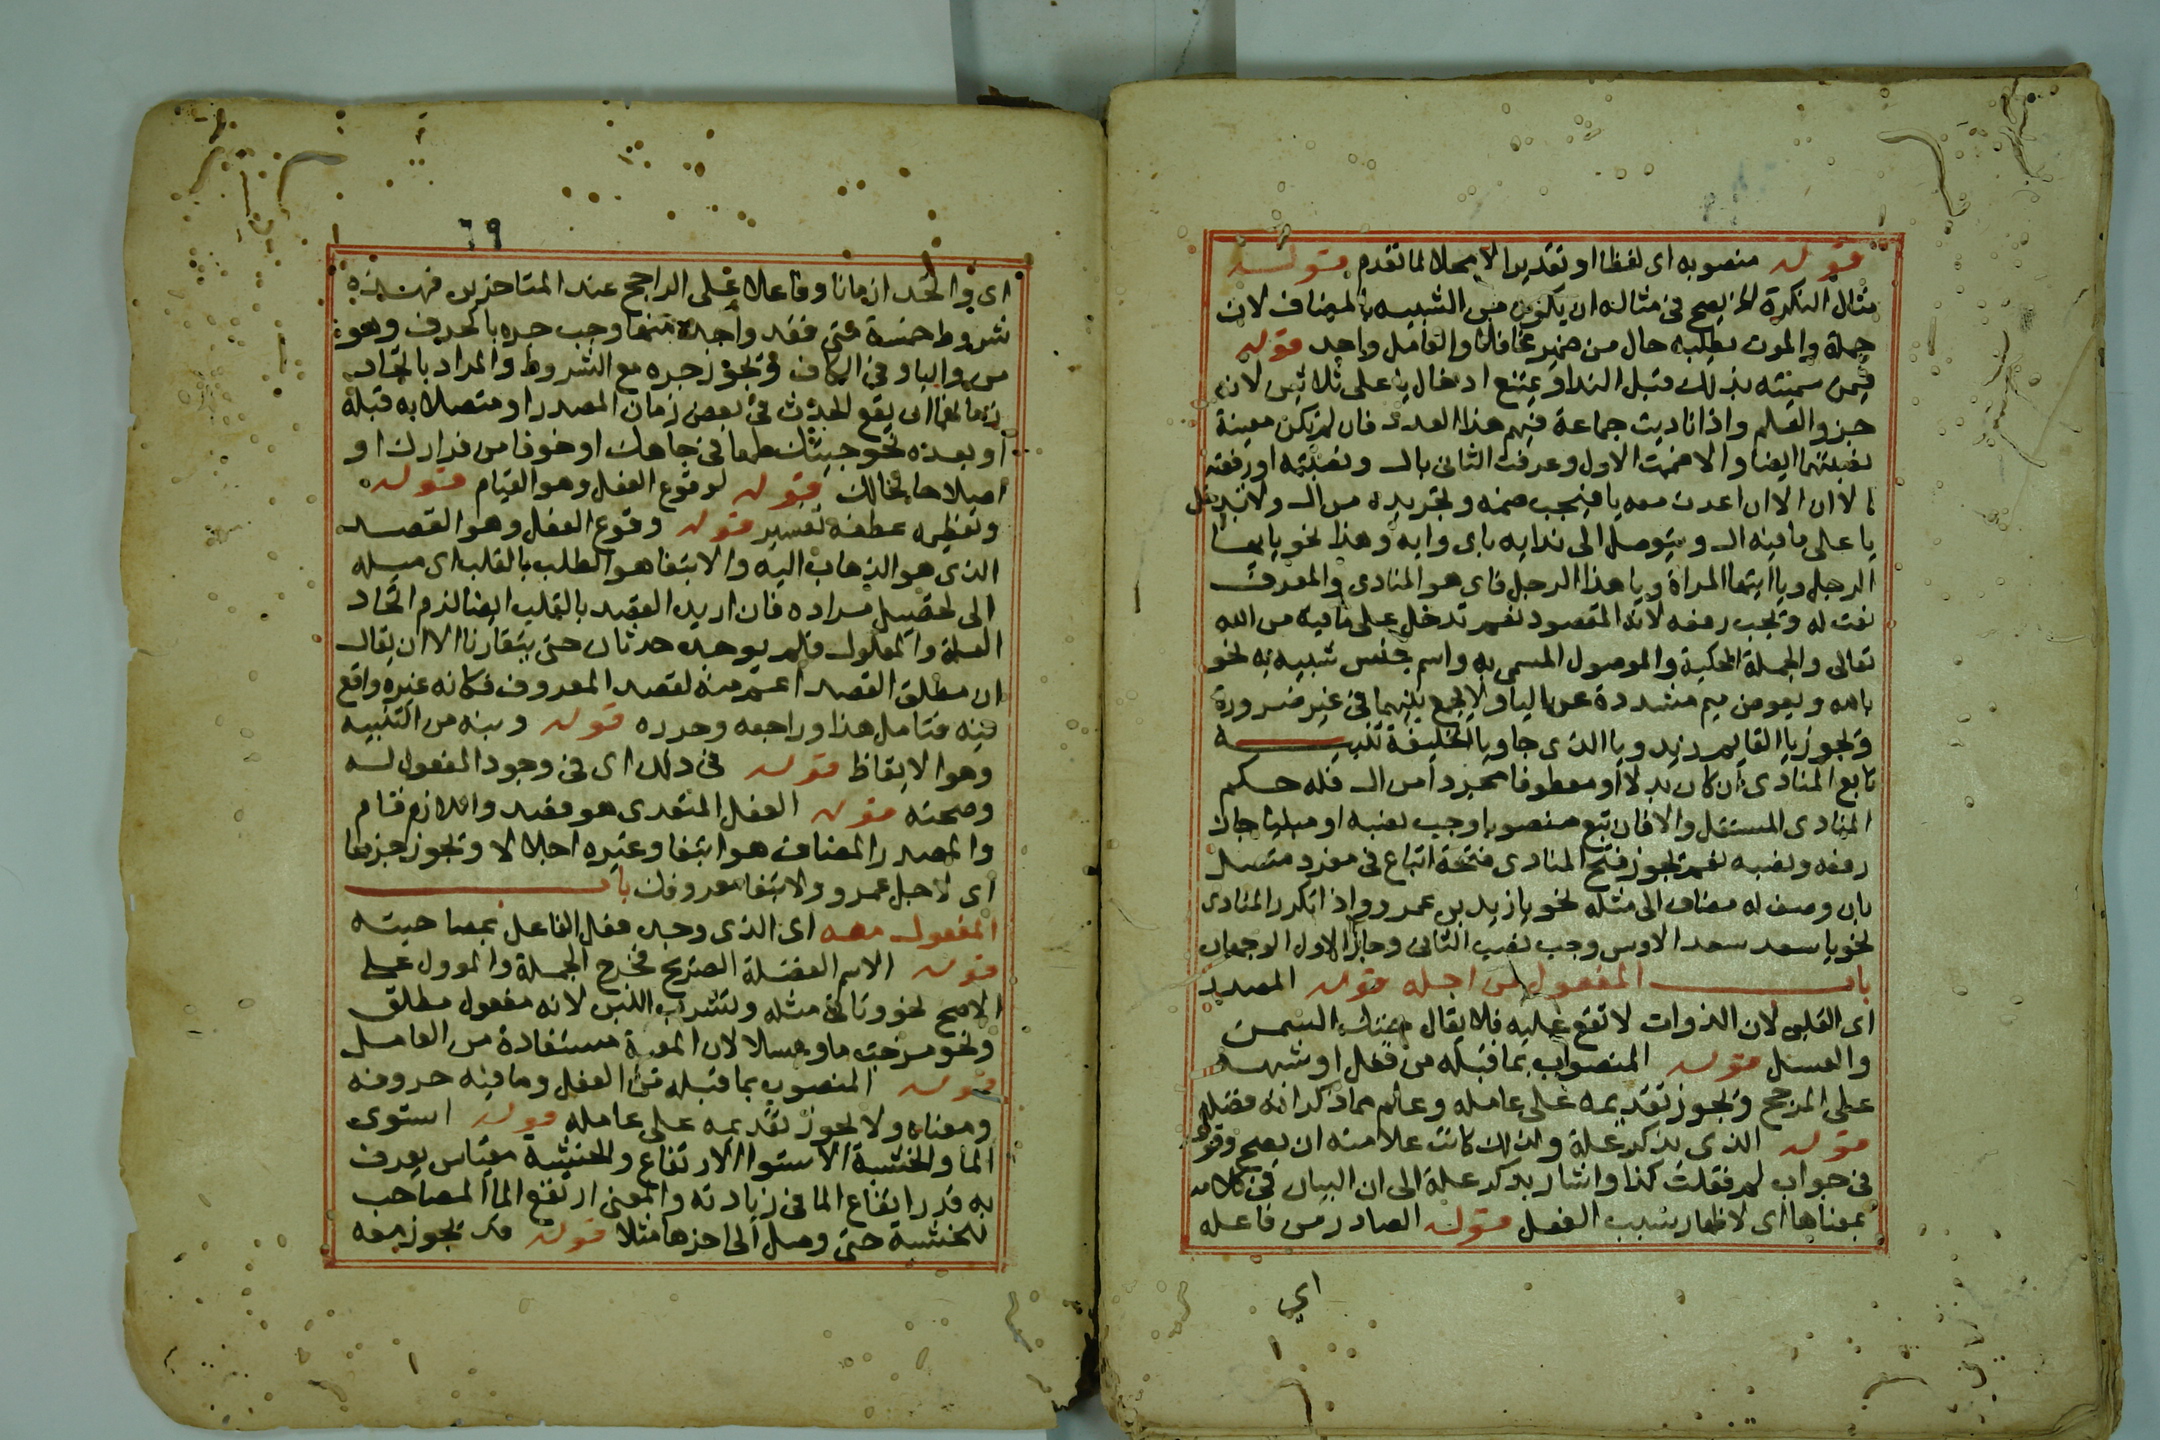 قوله منصوبه اى لفظا او تقديرا لا محلا لما تقدم قوله
مثال النكرة لا يصح فى مثاله ان يكون من الشبيه بالمضاف لان
جملة والموت يطلبه حال من ضمير غافلا والعامل واحد قوله
فيمن سميته بذلك قبل الندا ويمتنع ادخال يا على ثلاثين لانه
جزو العلم واذا ناديت جماعة فيهم هذا العدد فان لم تكن معينة
نصبتهما ايضا والا ضممت الاول وعرفت الثانى بال ونصبته او رفعته
الا ان اعدت معه يا فيجب ضمه وتجريده من ال ولا تدخل
يا على ما فيه ال ويتوصل الى ندايه باى وايه وهذا نحو يا ايها
الرجل ويا ايتها المراة ويا هذا الرجل فاى هو المنادى والمعرف
نعت له ويجب رفعه لانه المقصود نعم تدخل على ما فيه من الله
تعالى والجملة المحكية والموصول المسمى به واسم جنس شبيه به نحو
يالله ويعوض ميم مشددة عن اليا ولا يجمع بينهما فى غير ضرورة
ويجوز يا القايم زيد ويا الذى جا ويا الخليفة تنبيه
تابع المنادى ان كان بدلا او معطوفا مجردا من ال فله حكم
المنادى المستقل والا فان تبع منصوبا وجب نصبه او مبنيا جاز
رفعه ونصبه نعم يجوز فتح المنادى فتحة اتباع فى مفرد متصل
بابن وصف له مضاف الى مثله نحو يا زيد بن عمرو واذا تكرر المنادى
نحو يا سعد سعد الاوس وجب نصب الثانى وجاز فى الاول الوجهان
باب المفعول من اجله قوله المصدر
اى القلبى لان الذوات لا تقع عليه فلا يقال جئتك السمن
والعسل قوله المنصوب بما قبله من فعل او شبهه
على المرجح ويجوز تقديمه على عامله وعلم مما ذكر انه فضلة
قوله الذى يذكر علة ولذلك كانت علامته ان يصح وقوعه
فى جواب لم فعلت كذا واشار بذكر علة الى ان البيان فى كلامه
بمعناها اى لاظهار سبب الفعل قوله الصادر من فاعله
اي
٦٩
اى واتحد ازمانا وفاعلا على الراجح عند المتاخرين فهذه
شروط خمسة متى فقد واحد منها وجب جره بالحرف وهو
من والبا وفى الكاف ويجوز جره مع الشروط والمراد باتحاد
زمانهما ان يقع الحدث فى بعض زمان المصدر او متصلا به قبله
او بعده نحو جيتك طمعا فى جاهك او خوفا من فرارك او
اصلاحا لحالك قوله لوقوع الفعل وهو القيام قوله
وتعظيمه عطفه تفسير قوله وقوع الفعل وهو القصد
الذى هو الذهاب اليه والابتغا هو الطلب بالقلب اى ميله
الى تحصيل مراده فان اريد القصد بالقلب ايضا لزم اتحاد
العلة والمعلول فلم يوجد حدثان حتى يتقارنا الا ان يقال
ان مطلق القصد اعم منه لقصد المعروف فكانه غيره واقع
فيه فتامل هذا وراجعه وحرره قوله وبنه من التنبيه
وهو الايقاظ قوله فى ذلك اى فى وجود المفعول له
وصحته قوله الفعل المتعدى هو قصد واللازم قام
والمصدر المضاف هو ابتغا وغيره اجلالا ويجوز جرهما
اى لاجل عمرو ولابتغا معروفك باب
المفعول معه اى الذى وجد فعل الفاعل بمصاحبته
قوله الاسم الفضلة الصريح فخرج الجملة والموول على
الاصح نحو وتاتى مثله وتشرب اللبن لانه مفعول مطلق
ونحو مزجت ما وعسلا لان المعية مستفادة من العامل
قوله المنصوب بما قبله من الفعل وما فيه حروفه
ومعناه ولا يجوز تقديمه على عامله قوله استوى
الما والخشبة الاستوا الارتفاع والخشبة مقياس يعرف
به قدر ارتفاع الما فى زيادته والمعنى ارتفع الما المصاحب
للخشبة حتى وصل الى اخرها مثلا قوله قد يجوز معه